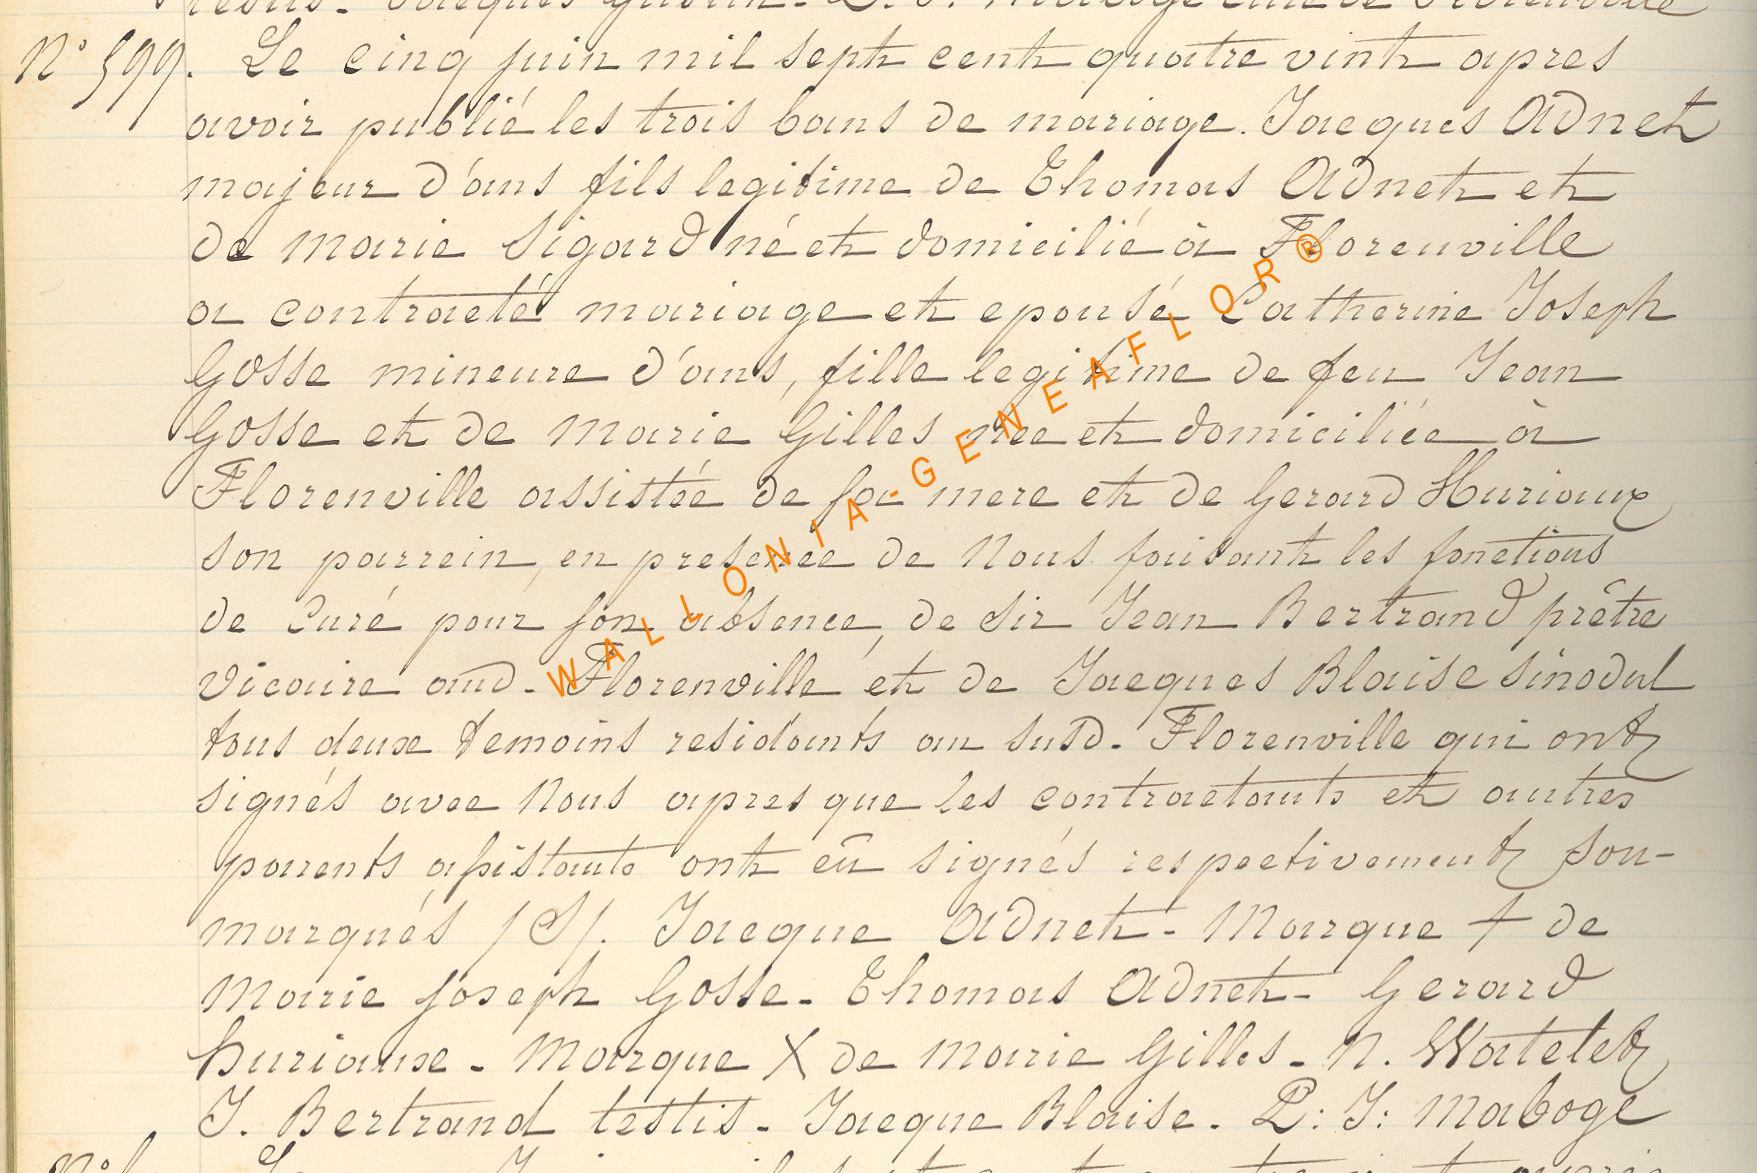 Jacques
N° 599. Le cinq juin mil sept cent quatre vint apres
avoir publié les trois bans de mariage. Jacques Adnet
majeur d'ans fils legitime de Thomas Adnet et
de Marie Sigard né et domicilié à Florenville
a contracté mariage et epousé Catherine Joseph
Gosse mineure d'ans, fille legitime de feu Jean
Gosse et de Marie Gilles née et domiciliée à
Florenville assistée de sa mere et de Gerard Huriaux
son parrein, en presence de Nous faisant les fonctions
de Curé pour son absence, de Sir Jean Bertrand prêtre
Vicaire aud. Florenville et de Jacques Blaise Sinodal
tous deux temoins residants au susd. Florenville qui ont
signés avec Nous apres que les contractants et autres
parents assistants ont eû signés respectivement sou-
marqués /S/. Jacque Adnet - Marque + de
Marie Joseph Gosse - Thomas Adnet - Gerard
huriaux - Marque X de Marie Gilles - N. Watelet
J. Bertrand testis - Jacque Blaise - P: J: Maboge
WALLONIA-GENEAFLOR®